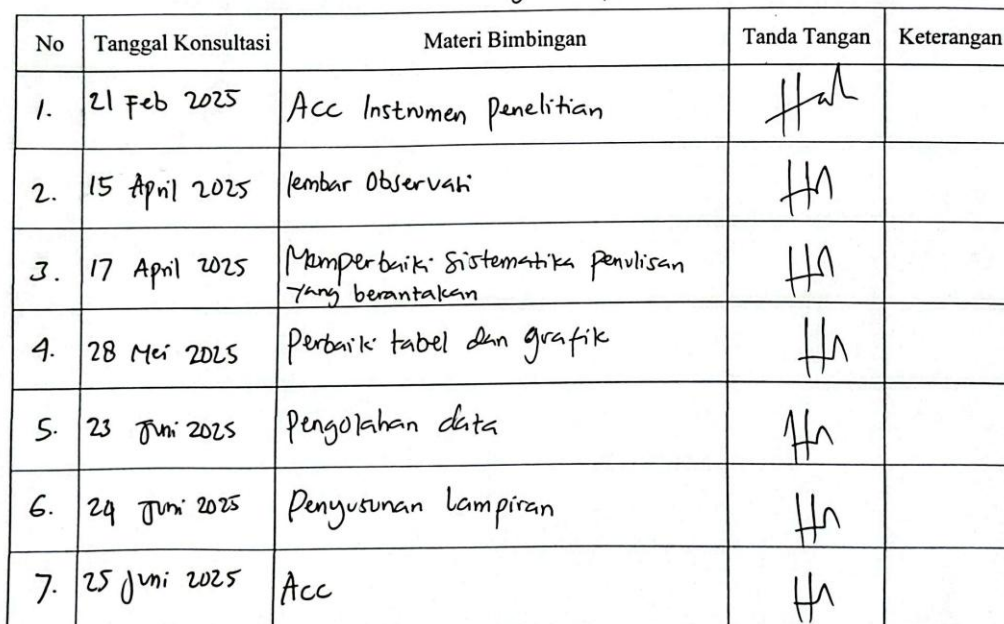 No Tanggal Konsultasi Materi Bimbingan Tanda Tangan Keterangan
1. 21 Feb 2025 Acc Instrumen Penelitian
2. 15 April 2025 lembar Observasi
3. 17 April 2025 Memperbaiki Sistematika penulisan
yang berantakan
4. 28 Mei 2025 Perbaiki tabel dan grafik
5. 23 Juni 2025 Pengolahan data
6. 24 Juni 2025 Penyusunan Lampiran
7. 25 Juni 2025 Acc